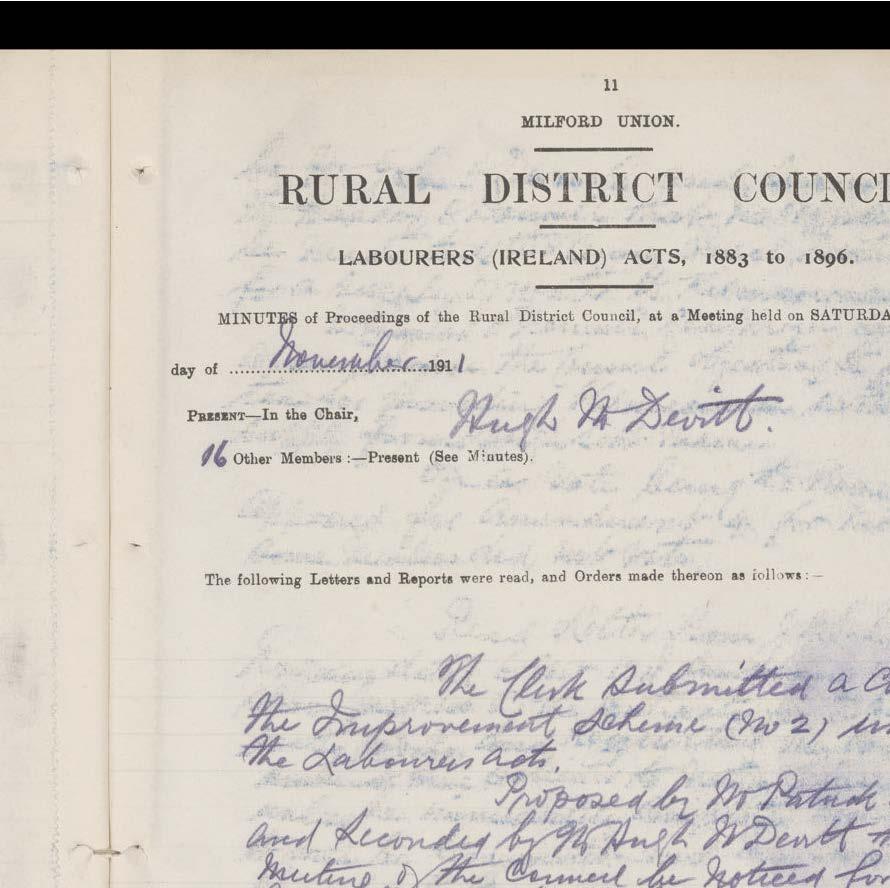 11
MILFORD UNION.
RURAL DISTRICT COUNCI
LABOURERS (IRELAND) ACTS, 1883 to 1896.
MINUTES of Proceedings of the Rural District Council, at a Meeting held on SATURDA
day of November 1911
PRESENT—In the Chair, Hugh McDevitt.
16 Other Members :—Present (See Minutes).
The following Letters and Reports were read, and Orders made thereon as follows :—
The Clerk Submitted a
the Improvement Scheme (No 2)
the Labourers Acts.
Proposed by Mr Patrick
and Seconded by Mr Hugh McDevitt
Meeting of the Council be noticed for